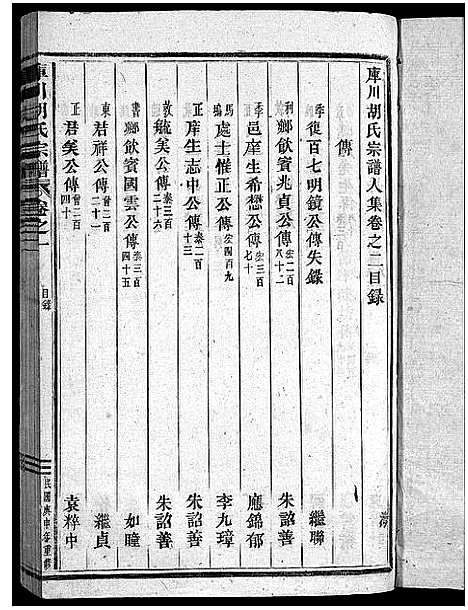 庫川胡氏宗譜人集卷之二目錄
傳
季 復百七明鏡公傳失錄 繼聯
利 鄉飲賓兆貞公傳 宏二百八十二 朱詔善
季 邑庠生希懋公傳 宏三百七十 應錦郁
馬塢 處士惟正公傳 宏四百九 李九璋
正 庠生志中公傳 泰二百十三 朱詔善
敦 毓美公傳 泰三百二十六 朱詔善
書 鄉飲賓國雲公傳 泰三百四十五 如曈
東 君祥公傳 曾二百二十一 繼貞
正 君美公傳 曾二百四十 袁粹中
庫川胡氏宗譜 卷之一 目錄
民國庚申年重修